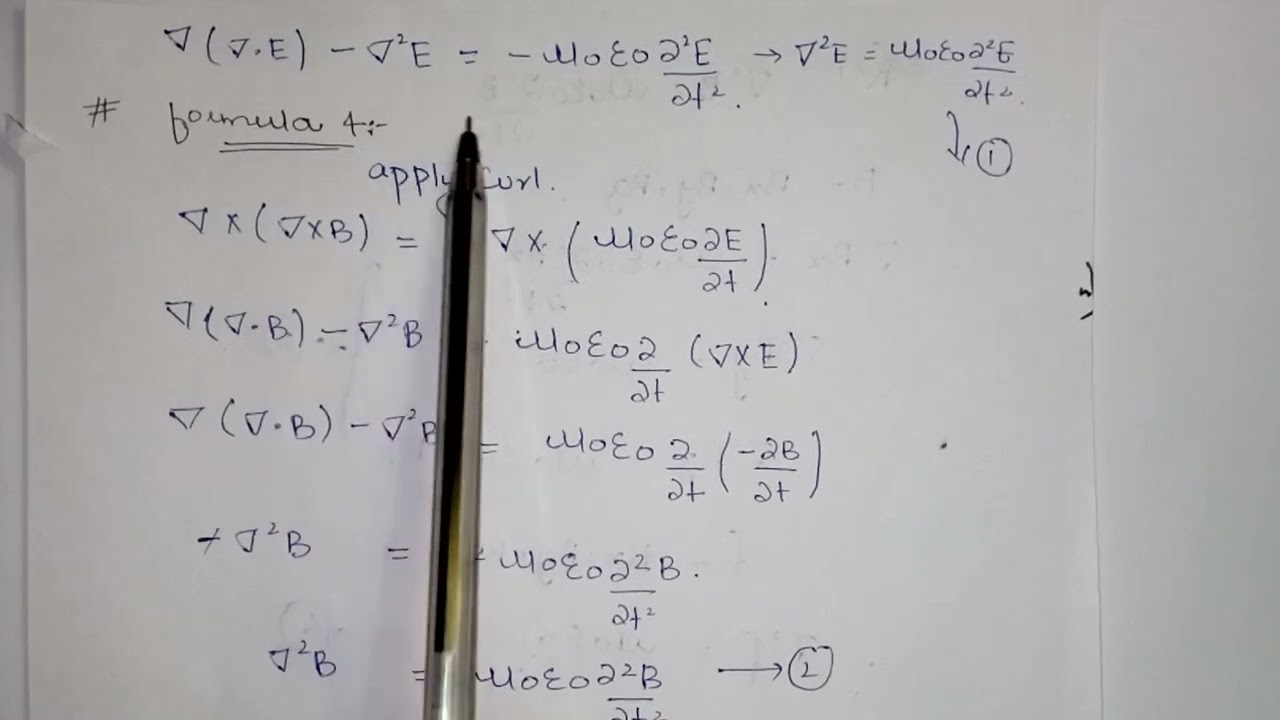 ∇(∇.E) - ∇²E = -μ₀ε₀ ∂²E/∂t². → ∇²E = μ₀ε₀ ∂²E/∂t².
↓ ①
# formula 4:-
apply curl.
∇ × (∇×B) = ∇ × (μ₀ε₀ ∂E/∂t).
∇(∇.B) - ∇²B μ₀ε₀ ∂/∂t (∇×E)
∇(∇.B) - ∇²B = μ₀ε₀ ∂/∂t (-∂B/∂t)
+ ∇²B = + μ₀ε₀ ∂²B/∂t².
∇²B = μ₀ε₀ ∂²B/∂t² → ②